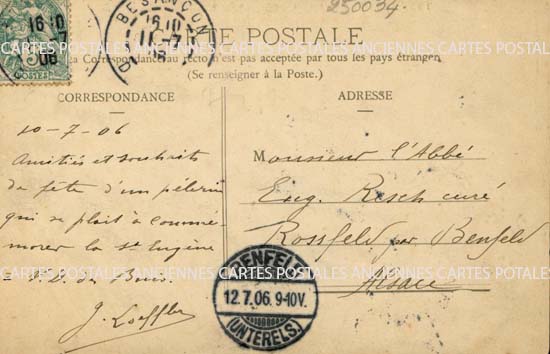 250034
CARTE POSTALE
La Correspondance au recto n'est pas acceptée par tous les pays étrangers
(Se renseigner à la Poste.)
16 10
7
06
5
POSTES
BESANÇON
16 10
11-7
06
D
CORRESPONDANCE
10-7-06
Amitiés et souhaits
de fête d'un pélerin
qui se plait à commé
morer la St Eugène
J. Loeffler
ADRESSE
Monsieur l'Abbé
Eug. Resch curé
Rossfeld par Benfeld
Alsace
BENFELD
12.7.06. 9-10V.
(UNTERELS.)
ANCIENNES CARTES POSTALES ANCIENNES CARTES POSTALES
ANCIENNES CARTES POTALES ANCIENNES CARTES POTALES ANCIENNES CARTES POTALES